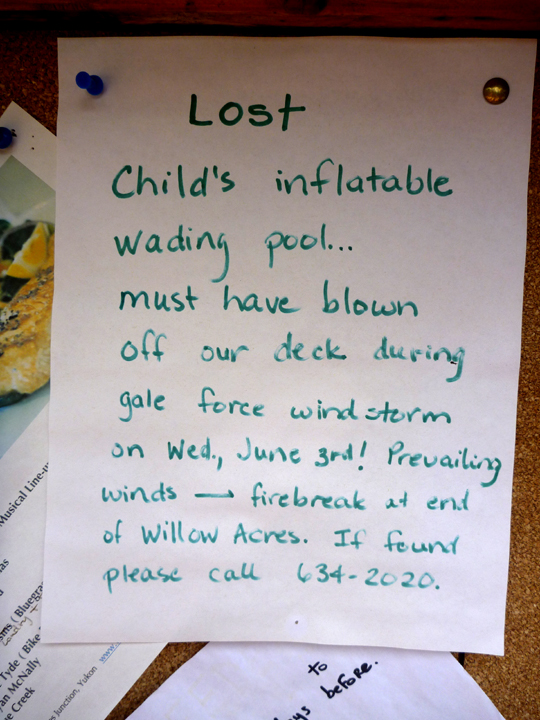 Lost
Child's inflatable
wading pool...
must have blown
off our deck during
gale force windstorm
on Wed., June 3rd! Prevailing
winds → firebreak at end
of Willow Acres. If found
please call 634-2020.
Musical Line-u
Bluegra
Tyde ( Bike
an McNally
e Creek
s Junction, Yukon www.
to
before.